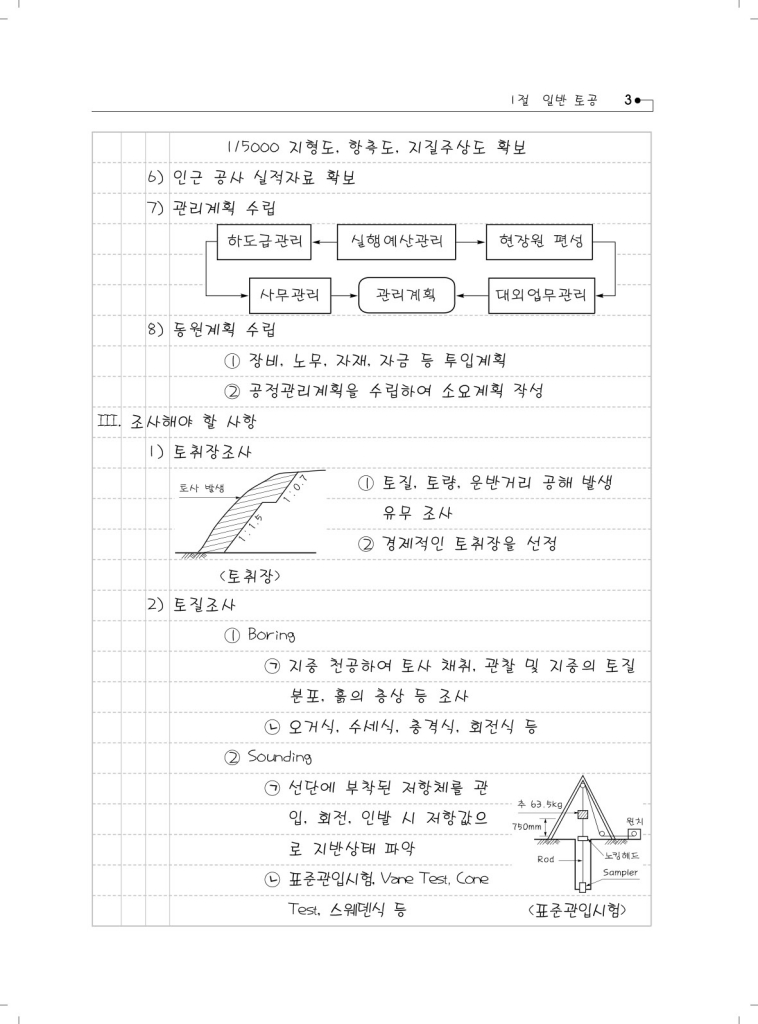 1절 일반 토공 3
1/5000 지형도, 항측도, 지질주상도 확보
6) 인근 공사 실적자료 확보
7) 관리계획 수립
하도급관리 실행예산관리 현장원 편성
사무관리 관리계획 대외업무관리
8) 동원계획 수립
① 장비, 노무, 자재, 자금 등 투입계획
② 공정관리계획을 수립하여 소요계획 작성
Ⅲ. 조사해야 할 사항
1) 토취장조사
토사 발생
1:0.7
1:1.5
① 토질, 토량, 운반거리 공해 발생
유무 조사
② 경제적인 토취장을 선정
〈토취장〉
2) 토질조사
① Boring
㉠ 지중 천공하여 토사 채취, 관찰 및 지중의 토질
분포, 흙의 층상 등 조사
㉡ 오거식, 수세식, 충격식, 회전식 등
② Sounding
㉠ 선단에 부착된 저항체를 관
입, 회전, 인발 시 저항값으
로 지반상태 파악
㉡ 표준관입시험, Vane Test, Cone
Test, 스웨덴식 등
추 63.5kg
750mm
윈치
노킹헤드
Rod
Sampler
〈표준관입시험〉